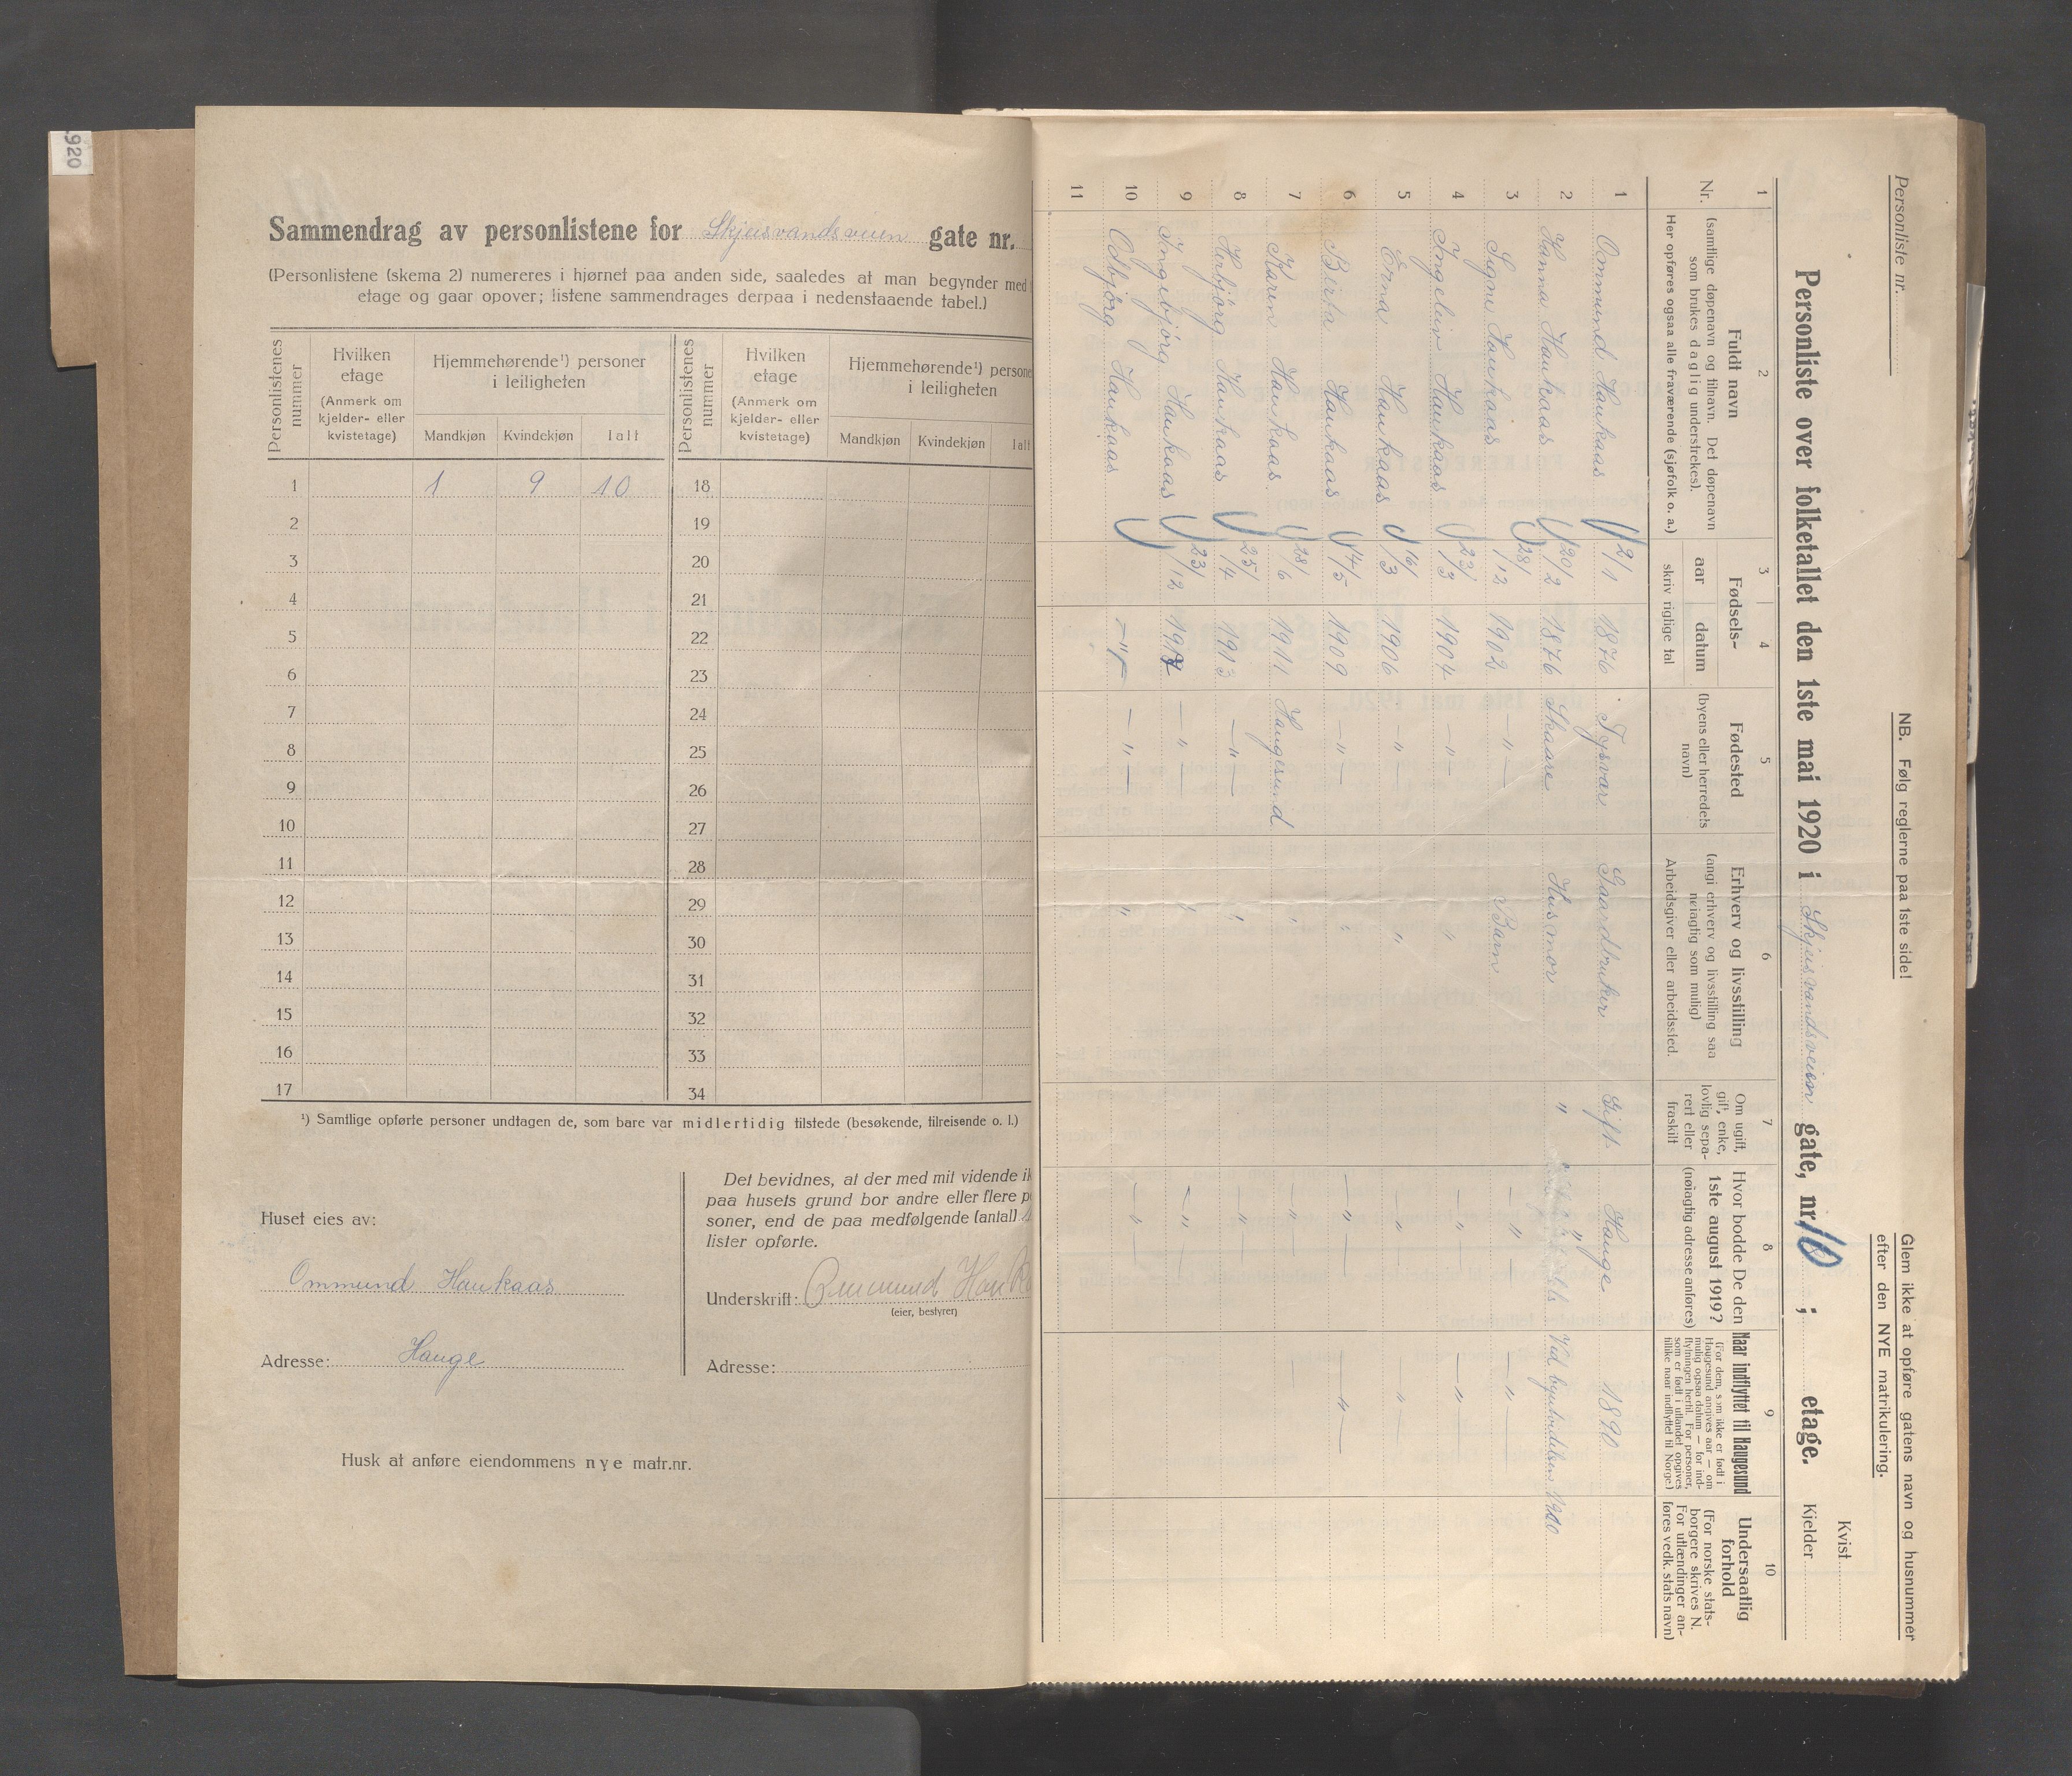 920
Sammendrag av personlistene for Skjeisvandsveien gate nr.
(Personlistene (skema 2) numereres i hjørnet paa anden side, saaledes at man begynder med
etage og gaar opover; listene sammendrages derpaa i nedenstaaende tabel.)
Personlistenes nummer
Hvilken etage (Anmerk om kjelder- eller kvistetage)
Hjemmehørende¹) personer i leiligheten
Mandkjøn Kvindekjøn Ialt
Personlistenes nummer
Hvilken etage (Anmerk om kjelder- eller kvistetage)
Hjemmehørende¹) persone
i leiligheten
Mandkjøn Kvindekjøn Ialt
1 1 9 10 18
2 19
3 20
4 21
5 22
6 23
7 24
8 25
9 26
10 27
11 28
12 29
13 30
14 31
15 32
16 33
17 34
¹) Samtlige opførte personer undtagen de, som bare var midlertidig tilstede (besøkende, tilreisende o. l.)
Huset eies av:
Ommund Haukaas
Adresse: Hauge
Det bevidnes, at der med mit vidende ik
paa husets grund bor andre eller flere pe
soner, end de paa medfølgende (antal)
lister opførte.
Underskrift: Ommund Hauka
(eier, bestyrer)
Adresse:
Husk at anføre eiendommens nye matr.nr.
Personliste nr.
NB. Følg reglerne paa 1ste side!
Glem ikke at opføre gatens navn og husnummer
efter den NYE matrikulering.
Kvist
Personliste over folketallet den 1ste mai 1920 i Skjeisvandsveien gate, nr. 10 ; etage.
Kjelder
1 2 3 4 5 6 7 8 9 10
Nr.
Fuldt navn
(samtlige døpenavn og tilnavn. Det døpenavn
som brukes daglig understrekes).
Her opføres ogsaa alle fraværende (sjøfolk o. a.)
Fødsels-
aar datum
skriv rigtige tal
Fødested
(byens eller herredets
navn)
Erhverv og livsstilling
(angi erhverv og livsstilling saa
nøiagtig som mulig)
Arbeidsgiver eller arbeidssted.
Om ugift,
gift, enke,
lovlig sepa-
rert eller
fraskilt
Hvor bodde De den
1ste august 1919?
(nøiagtig adresse anføres)
Naar indflyttet til Haugesund
(For dem, som ikke er født i
Haugesund angives aar — om
mulig ogsaa datum — for ind-
flytningen hertil. For personer,
som er født i utlandet opgives
tillike naar indflyttet til Norge.)
Undersaatlig
forhold
(For norske stats-
borgere skrives N.
For utlændinger an-
føres vedk. stats navn)
1 Ommund Haukaas 2/1 1876 Tysvær Gaardbruker Gift Hauge 1890
2 Hanna Haukaas 20/2 1876 Skaare Husmor " " Ved byutvidelsen 1910
3 Signe Haukaas 28/12 1902 —"— Barn —"— —"—
4 Ingeliv Haukaas 23/3 1904 —"— " —"— —"—
5 Erna Haukaas 16/3 1906 —"— " —"— —"—
6 Birta Haukaas 14/5 1909 —"— " —"— —"—
7 Karen Haukaas 28/6 1911 Haugesund " —"—
8 Herbjörg Haukaas 25/4 1913 —"— " —"—
9 Ingebjörg Haukaas 23/12 1917 —"— " —"—
10 Odbjörg Haukaas —"— —"— " —"—
11